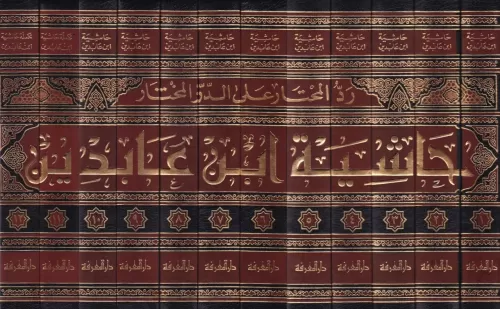 حاشية حاشية حاشية حاشية حاشية حاشية حاشية حاشية حاشية حاشية
ابن عابدين ابن عابدين ابن عابدين ابن عابدين ابن عابدين ابن عابدين ابن عابدين ابن عابدين ابن عابدين ابن عابدين ابن عابدين ابن عابدين
رد المحتار على الدر المختار
حاشية ابن عابدين
١ ٢ ٣ ٤ ٥ ٦ ٧ ٨ ٩ ١٠ ١١ ١٢
دار المعرفة دار المعرفة دار المعرفة دار المعرفة دار المعرفة دار المعرفة دار المعرفة دار المعرفة دار المعرفة دار المعرفة دار المعرفة دار المعرفة